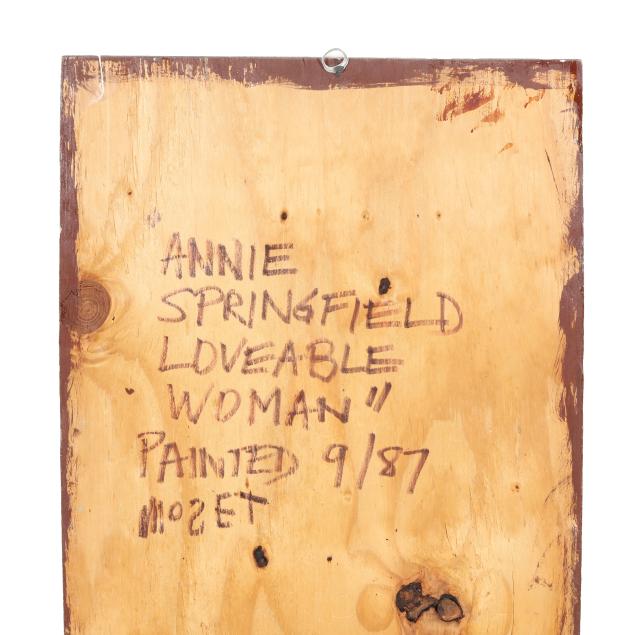 ANNIE
SPRINGFIELD
LOVEABLE
WOMAN"
PAINTED 9/87
MOSET